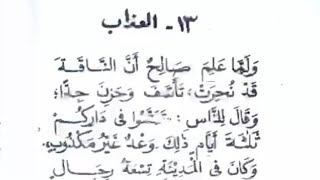 ١٣ - العذاب
وَلَمَّا عَلِمَ صَالِحٌ أَنَّ النَّاقَةَ
قَدْ نُحِرَتْ؛ تَأَسَّفَ وَحَزِنَ جِدًّا؛
وَقَالَ لِلنَّاسِ: تَمَتَّعُوا فِي دَارِكُمْ
ثَلٰثَةَ أَيَّامٍ ذٰلِكَ وَعْدٌ غَيْرُ مَكْذُوبٍ.
وَكَانَ فِي الْمَدِينَةِ تِسْعَةُ رِجَالٍ